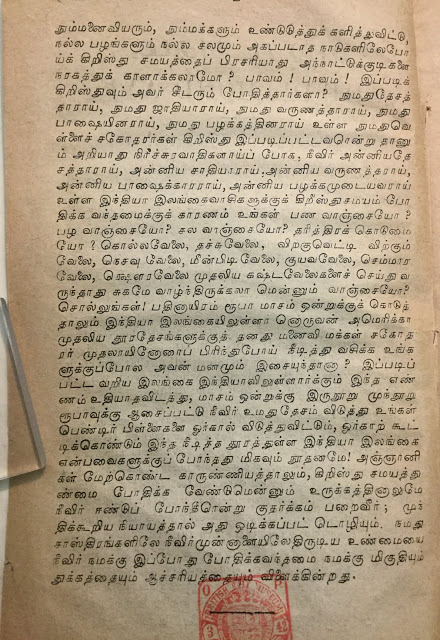 தும்மனைவியரும், தும்மக்களும் உண்டுடுத்துக் களித்துவிட்டு,
நல்ல பழங்களும் நல்ல சலமும் அகப்படாத நாடுகளிலேபோ
ய்க் கிறிஸ்து சமயத்தைப் பிரசரியாது அந்நாட்டுக்குடிகளை
நரகத்துக் காளாக்கலாமோ? பாவம்! பாவம்! இப்படிக்
கிறிஸ்துவும் அவர் சீடரும் போதித்தார்களா? நுமதுதேசத்
தாராய், நுமது ஜாதியாராய், நுமது வருணத்தாராய், நுமது
பாஷையினராய், நுமது பழக்கத்தினராய் உள்ள நுமதுவெ
ள்ளைச் சகோதரர்கள் கிறிஸ்து இப்படிப்பட்டவரென்று தானு
ம் அறியாது நிரீச்சுரவாதிகளாய்ப் போக, நீவிர் அன்னியதே
சத்தாராய், அன்னிய சாதியாராய், அன்னிய வருணத்தராய்,
அன்னிய பாஷைக்காரராய், அன்னிய பழக்கமுடையவராய்
உள்ள இந்தியா இலங்கைவாசிகளுக்குக் கிறிஸ்துசமயம் போ
திக்க வந்தமைக்குக் காரணம் உங்கள் பண வாஞ்சையோ?
பழ வாஞ்சையோ? சல வாஞ்சையோ? தரித்திரக் கொடுமை
யோ? கொல்லவேலை, தச்சுவேலை, விறகுவெட்டி விற்கும்
வேலை, நெசவு வேலை, மீன்பிடிவேலை, குயவவேலை, செம்மார
வேலை, க்ஷௌரவேலை முதலிய கஷ்டவேலைகளைச் செய்து வ
ருந்தாது சுகமே வாழ்ந்திருக்கலா மென்னும் வாஞ்சையோ?
சொல்லுங்கள்! பதினாயிரம் ரூபா மாசம் ஒன்றுக்குக் கொடுத்
தாலும் இந்தியா இலங்கையிலுள்ளா னொருவன் அமெரிக்கா
முதலிய தூரதேசங்களுக்குத் தனது மனைவி மக்கள் சகோத
ரர் முதலாயினோரைப் பிரிந்துபோய் நீடித்து வசிக்க உங்க
ளுக்குப்போல அவன் மனமும் இசையுந்தானா? இப்படிப்
பட்ட வறிய இலங்கை இந்தியாவிலுள்ளார்க்கும் இந்த எண்
ணம் உதியாதவிடத்து, மாசம் ஒன்றுக்கு இருநூறு முந்நூறு
ரூபாவுக்கு ஆசைப்பட்டு நீவிர் உமதுதேசம் விடுத்து உங்கள்
பெண்டிர் பிள்ளைகளை ஓர்கால் விடுத்துவிட்டும், ஓர்காற் கூட்
டிக்கொண்டும் இந்த நீடித்த தூரத்துள்ள இந்தியா இலங்கை
என்பவைகளுக்குப் போந்தது மிகவும் நூதனமே! அஞ்ஞானி
கள் மேற்கொண்ட காருண்ணியத்தாலும், கிறிஸ்து சமயத்து
ண்மை போதிக்க வேண்டுமென்னும் உருக்கத்தினாலுமே
நீவிர் ஈண்டுப் போந்தீரென்று குதர்க்கம் பறைவீர்; முந்
திக்கூறிய நியாயத்தால் அது ஒடிக்கப்பட் டொழியும். நமது
சாஸ்திரங்களிலே நீவிர்முன்னாளையிலேதிருடிய உண்மையை
நீவிர் நமக்கு இப்போது போதிக்கவந்தமை நமக்கு மிகுதியுந்
துக்கத்தையும் ஆச்சரியத்தையும் விளைக்கின்றது.